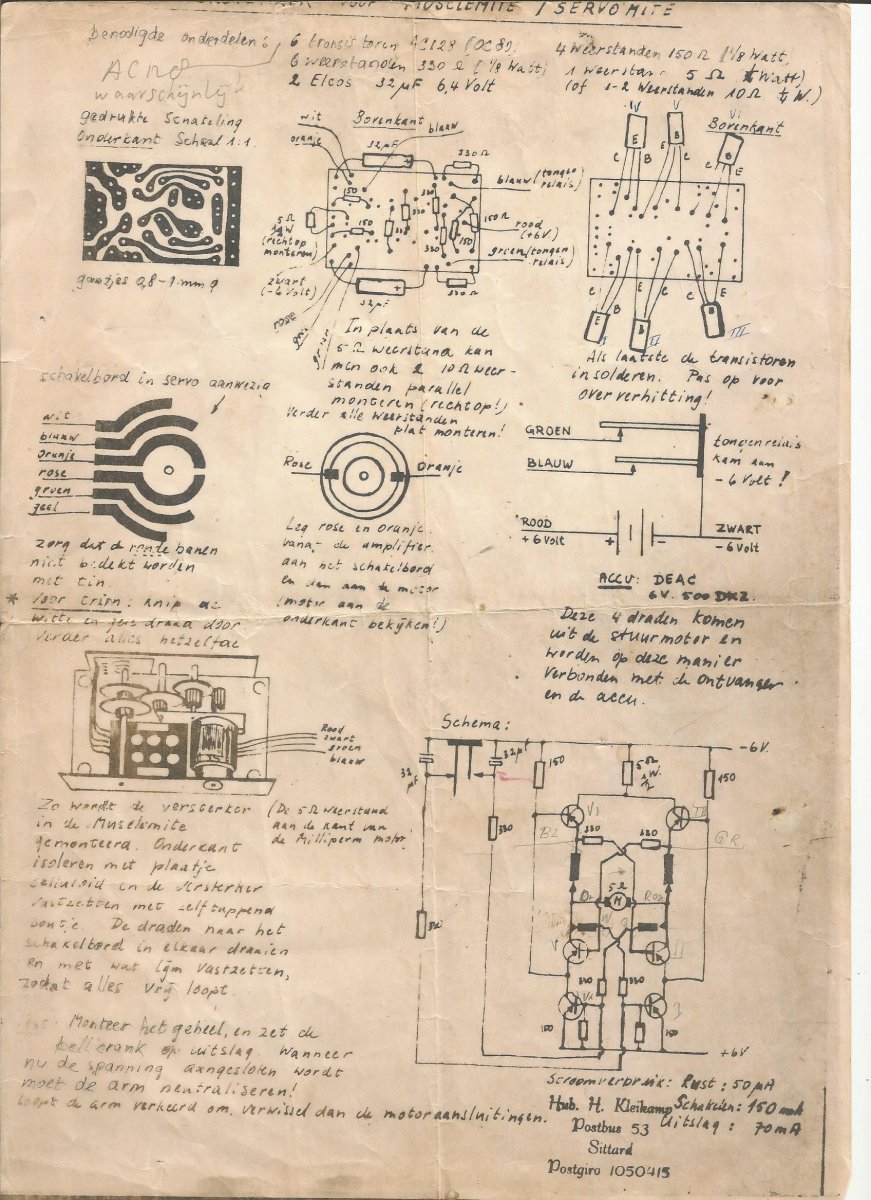 VOOR MUSCLEMITE / SERVOMITE
benodigde onderdelen:
6 transistoren AC128 (OC80)
6 weerstanden 330 Ω (1/8 Watt)
2 Elcos 32µF 6,4 Volt
4 weerstanden 150 Ω (1/8 Watt,
1 weerstand 5 Ω ½ Watt)
(of 1-2 weerstanden 10Ω ½ W.)
waarschijnlijk
gedrukte schakeling
Onderkant Schaal 1:1.
gaatjes 0,8-1 mm
Bovenkant
wit
oranje
blauw
32µF
330Ω
blauw (tongen
relais)
150
330
330
330
150
150Ω
150
5Ω
½W
(rechtop
monteren)
rood
(+6V)
groen (tongen
relais)
zwart
(-6 Volt)
32µF
330
rose
In plaats van de
5 Ω weerstand kan
men ook 2 10Ω weer-
standen parallel
monteren (rechtop!)
Verder alle weerstanden
plat monteren!
Bovenkant
IV
V
VI
E
B
B
C
B
E
C
C
B
E
C
E
B
C
E
B
C
E
B
I
II
III
Als laatste de transistoren
insolderen. Pas op voor
oververhitting!
schakelbord in servo aanwezig
wit
blauw
oranje
rose
groen
geel
Rose
oranje
GROEN
BLAUW
tongenrelais
kam aan
-6 Volt!
ROOD
+6 Volt
+
-
ZWART
-6 Volt
ACCU: DEAC
6V. 500 DKZ.
zorg dat de ronde banen
niet bedekt worden
met tin.
* voor trim: knip de
witte en gele draad door
verder alles hetzelfde
Leg rose en oranje
vanaf de amplifier
aan het schakelbord
en dan aan de motor
(motor aan de
onderkant bekijken!)
Deze 4 draden komen
uit de stuurmotor en
worden op deze manier
verbonden met de ontvanger
en de accu.
Rood
zwart
groen
blauw
Zo wordt de versterker
in de Musclemite
gemonteerd. Onderkant
isoleren met plaatje
celluloid en de versterker
vastzetten met selftappend
boutje. De draden naar het
schakelbord in elkaar draaien
en met wat lijm vastzetten,
zodat alles vrij loopt.
(De 5Ω weerstand
aan de kant van
de Milliperm motor.
Schema:
-6V.
32µF
32µF
150
5Ω
½W.
150
330
VI
III
330
330
5Ω
M
V
II
330
330
IV
I
150
150
+6V
Monteer het geheel, en zet de
bellcrank op uitslag. Wanneer
nu de spanning aangesloten wordt
moet de arm neutraliseren!
Loopt de arm verkeerd om, verwissel dan de motoraansluitingen.
Stroomverbruik: Rust: 50µA
Schakelen: 150 mA
Uitslag: 70mA
Hub. H. Kleikamp
Postbus 53
Sittard
Postgiro 1050415